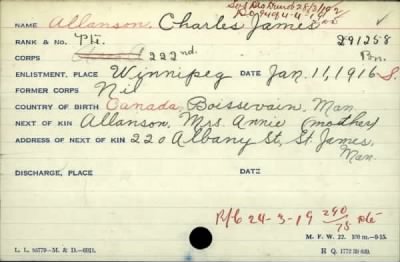 NAME Allanson, Charles James
RANK & No. Pte. 291258
CORPS 222nd. Bn.
ENLISTMENT, PLACE Winnipeg DATE Jan. 11, 1916 S.
FORMER CORPS Nil
COUNTRY OF BIRTH Canada, Boissevain, Man
NEXT OF KIN Allanson, Mrs. Annie (mother)
ADDRESS OF NEXT OF KIN 220 Albany St, St. James,
Man.
DISCHARGE, PLACE DATE
24-3-19 290/75 Pte
M. F. W. 22. 100 m.-9-15.
L. L. 55779-M. & D.-6911. H Q. 1772 39 639.